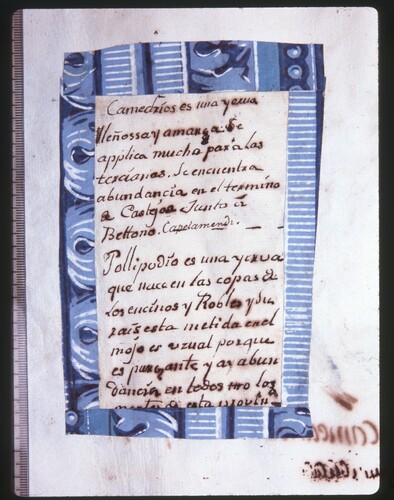 Camedrios es una yerva
lleñossa y amarga se
applica mucho para las
tercianas. Se encuentra
abundancia en el termino
de Castejon Junto a
Bettono. Capelamendi.
Pollipodio es una yerva
que nace en las copas de
los encinos y Robles y su
rais esta metida en el
mojo es usual porque
es purgante y ay abun
dancia en todos los